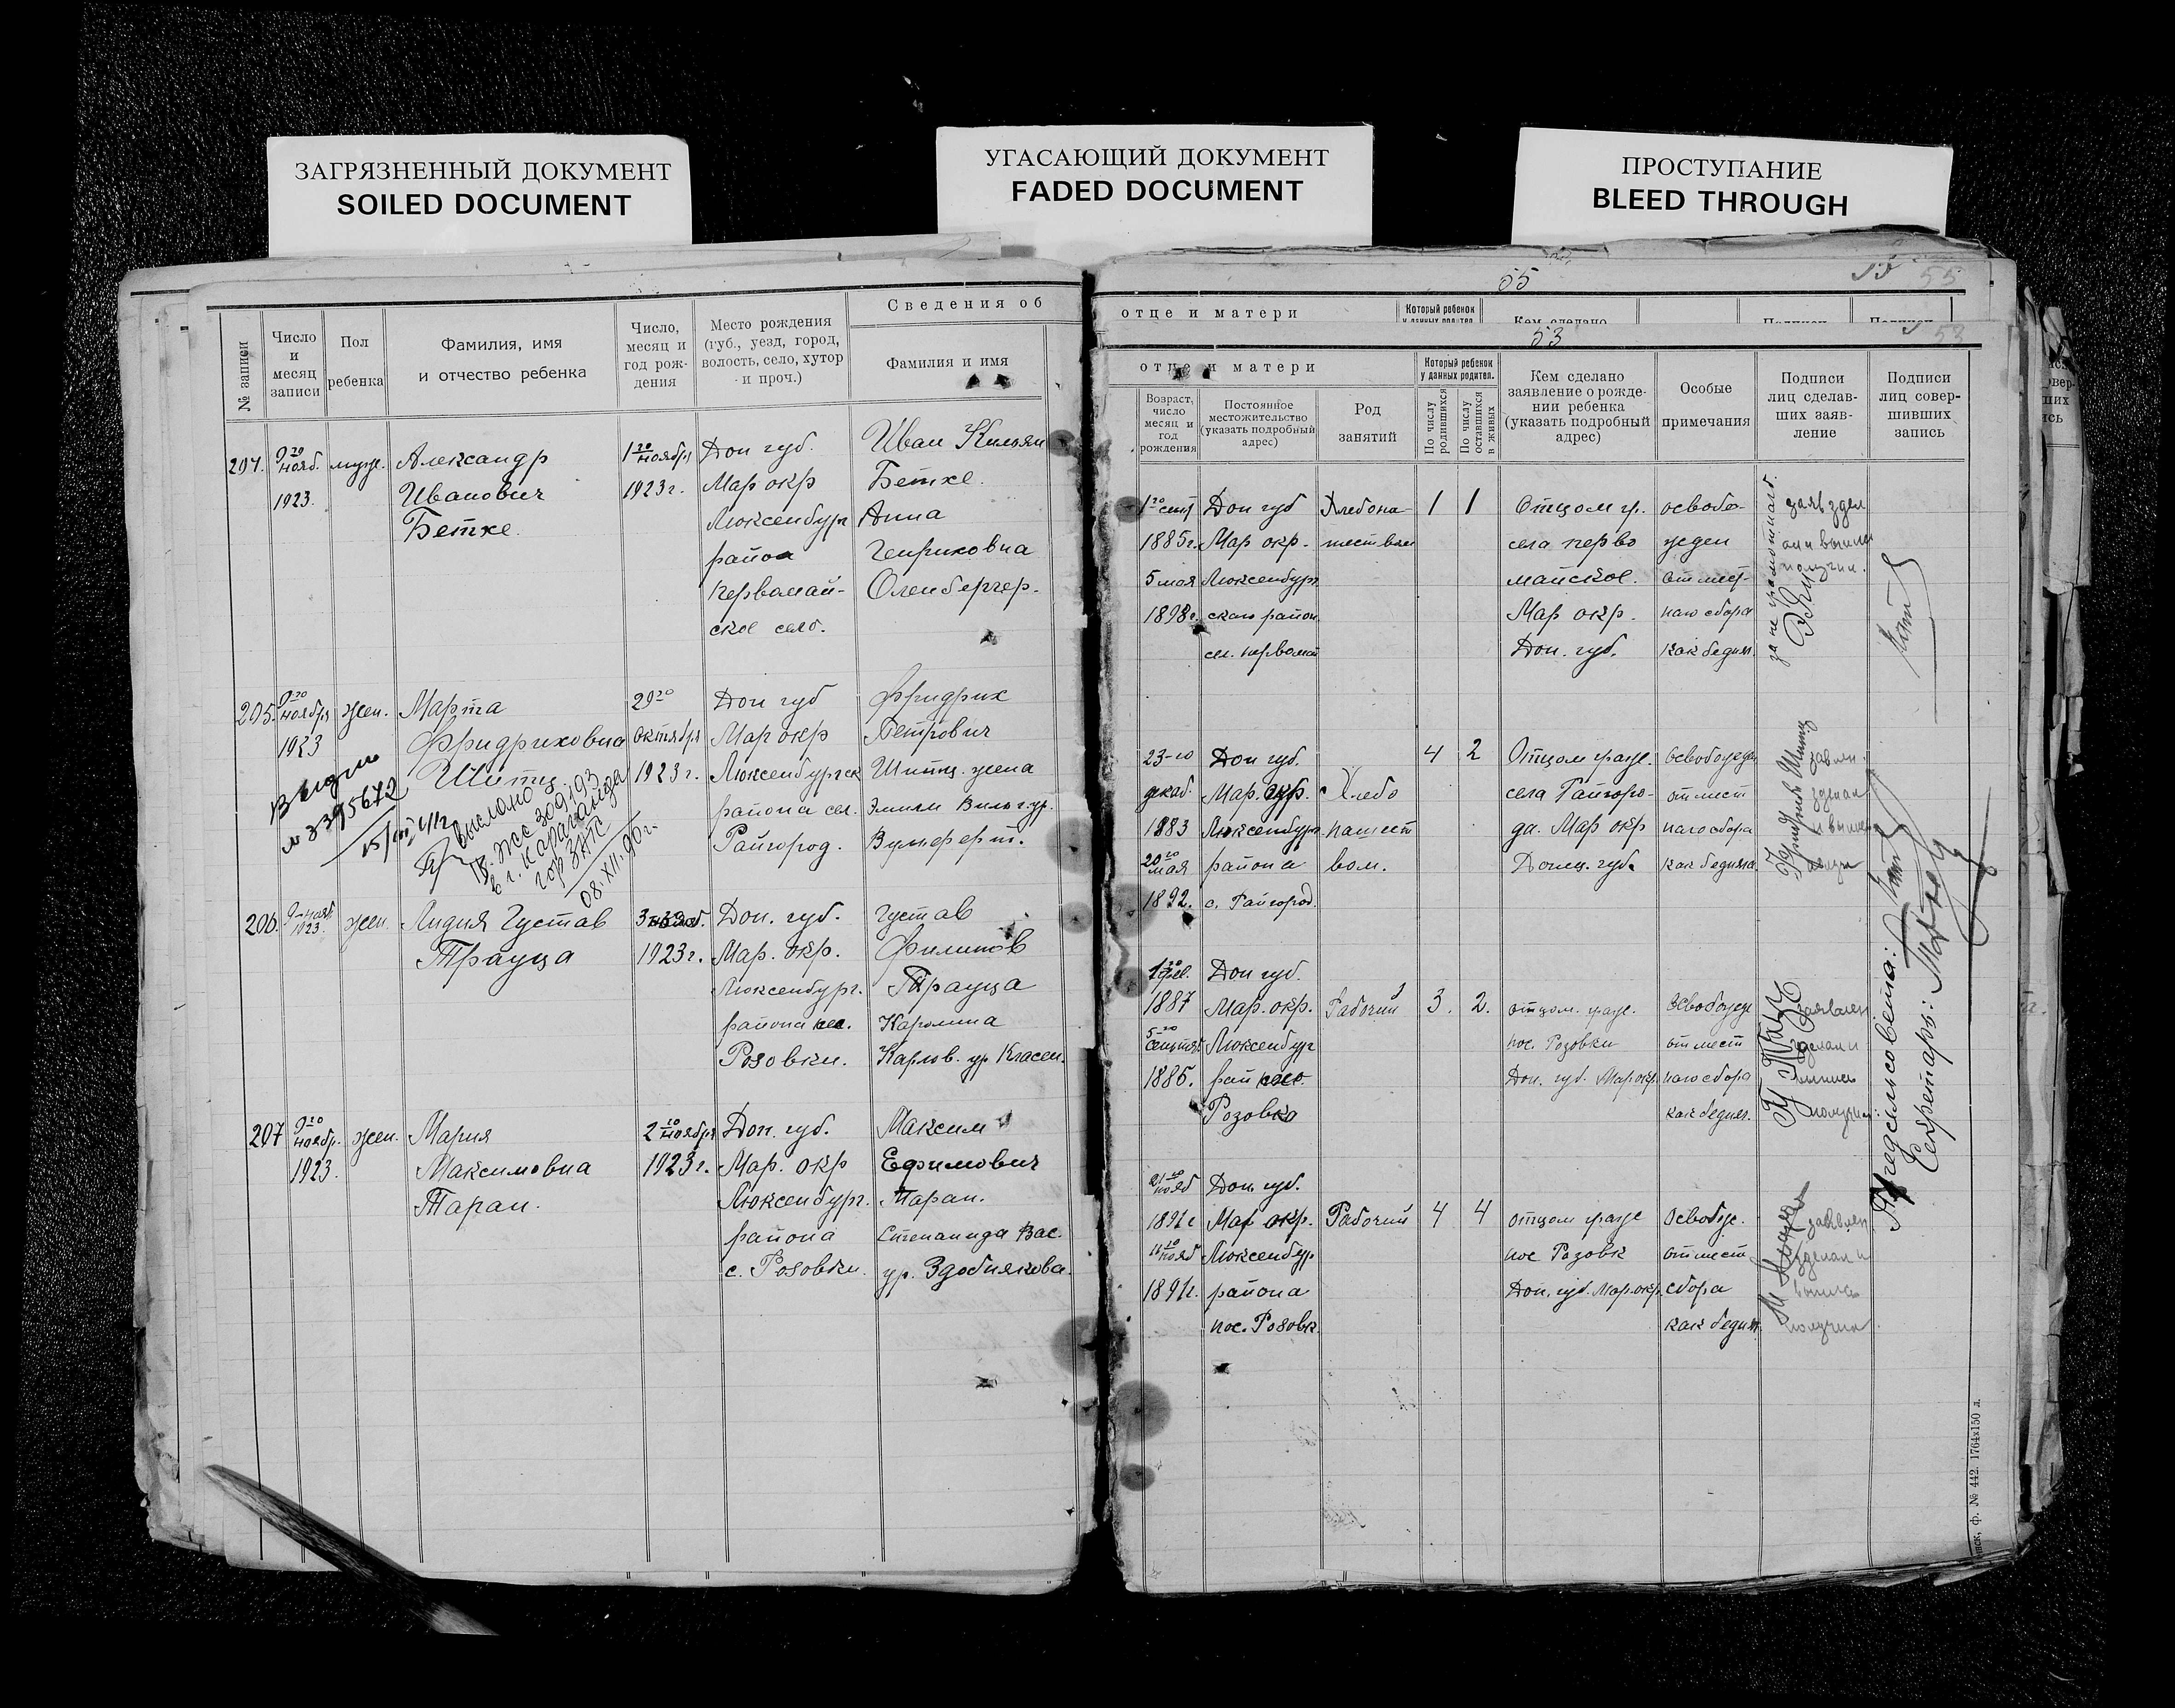 ЗАГРЯЗНЕННЫЙ ДОКУМЕНТ
SOILED DOCUMENT
УГАСАЮЩИЙ ДОКУМЕНТ
FADED DOCUMENT
ПРОСТУПАНИЕ
BLEED THROUGH
№ записи
Число
и
месяц
записи
Пол
ребенка
Фамилия, имя
и отчество ребенка
Число,
месяц и
год рож-
дения
Место рождения
(губ., уезд, город,
волость, село, хутор
и проч.)
Сведения об
Фамилия и имя
204.
9го
нояб.
1923.
муж.
Александр
Иванович
Бетке.
1го ноября
1923 г.
Дон губ.
Мар окр
Люксенбург
район
Первамай-
ское село.
Иван
Бетке.
Анна
Генриховна
Оленбергер.
205.
9го
ноября
1923
жен.
Марта
Фридриховна
Шитц
29го
октября
1923 г.
Дон губ
Мар окр
Люксенбургск
района сел.
Райгород.
Фридрих
Петрович
Шитц. жена
Эмили Вильг. ур.
Выдано
№ 3395672
выслано
ЖС 309193
в г. Караганда
гор ЗАГС
08.XII.90г.
206.
9 нояб
1923
жен
Лидия Густав
Трауца
3 нояб.
1923 г.
Дон. губ.
Мар. окр.
Люксенбург.
района пос.
Розовки.
Густав
Филипов
Трауца
Каролина
Карлов. ур Класен.
207
9го
ноябр.
1923.
жен.
Мария
Максимовна
Таран.
2го ноября
1923 г.
Дон. губ.
Мар. окр
Люксенбург.
района
с. Розовки.
Максим
Ефимович
Таран.
Степанида Вас.
ур. Здобнякова.
55
55
отце и матери
Который ребенок
53
53
отце и матери
Возраст,
число
месяц и
год
рождения
Постоянное
местожительство
(указать подробный
адрес)
Род
занятий
Который ребенок
у данных родител.
По числу
родившихся
По числу
оставшихся
в живых
Кем сделано
заявление о рожде-
нии ребенка
(указать подробный
адрес)
Особые
примечания
Подписи
лиц сделав-
ших заяв-
ление
Подписи
лиц совер-
шивших
запись
1го сент
1885 г.
5 мая
1898 г.
Дон губ
Мар окр.
Люксенбург
скаго район
сел. первамай
Хлебопа-
шеством
1
1
Отцом гр.
села перво
майское.
Мар окр.
Дон. губ.
освобо-
жден
от мест-
наго сбора
как бедняк.
23-го
декаб.
1883
20го
мая
1892.
Дон губ.
Мар. окр.
Люксенбург
района
с. Райгород.
Хлебо
пашест
вом.
4
2
Отцом граж.
села Райгоро-
да. Мар окр
Донец. губ.
освобожден
от мест
наго сбора
как бедняк.
1го фев.
1887
5-го
сентяб
1886.
Дон губ.
Мар. окр.
Люксенбург
рай пос.
Розовка
Рабочий
3.
2.
отцом. граж.
пос. Розовки
Дон. губ. Мар. окр.
Освобожд
от мест
наго сбора
как бедняк.
Председ совета:
Секретарь:
нояб
1891 г
нояб
1891 г.
Дон. губ.
Мар окр.
Люксенбур
района
пос. Розовк.
Рабочий
4
4
отцом граж
пос Розовк
Дон. губ. Мар. окр.
Освобож.
от мест.
сбора
как бедняк
ф. № 442. 1764x150 л.